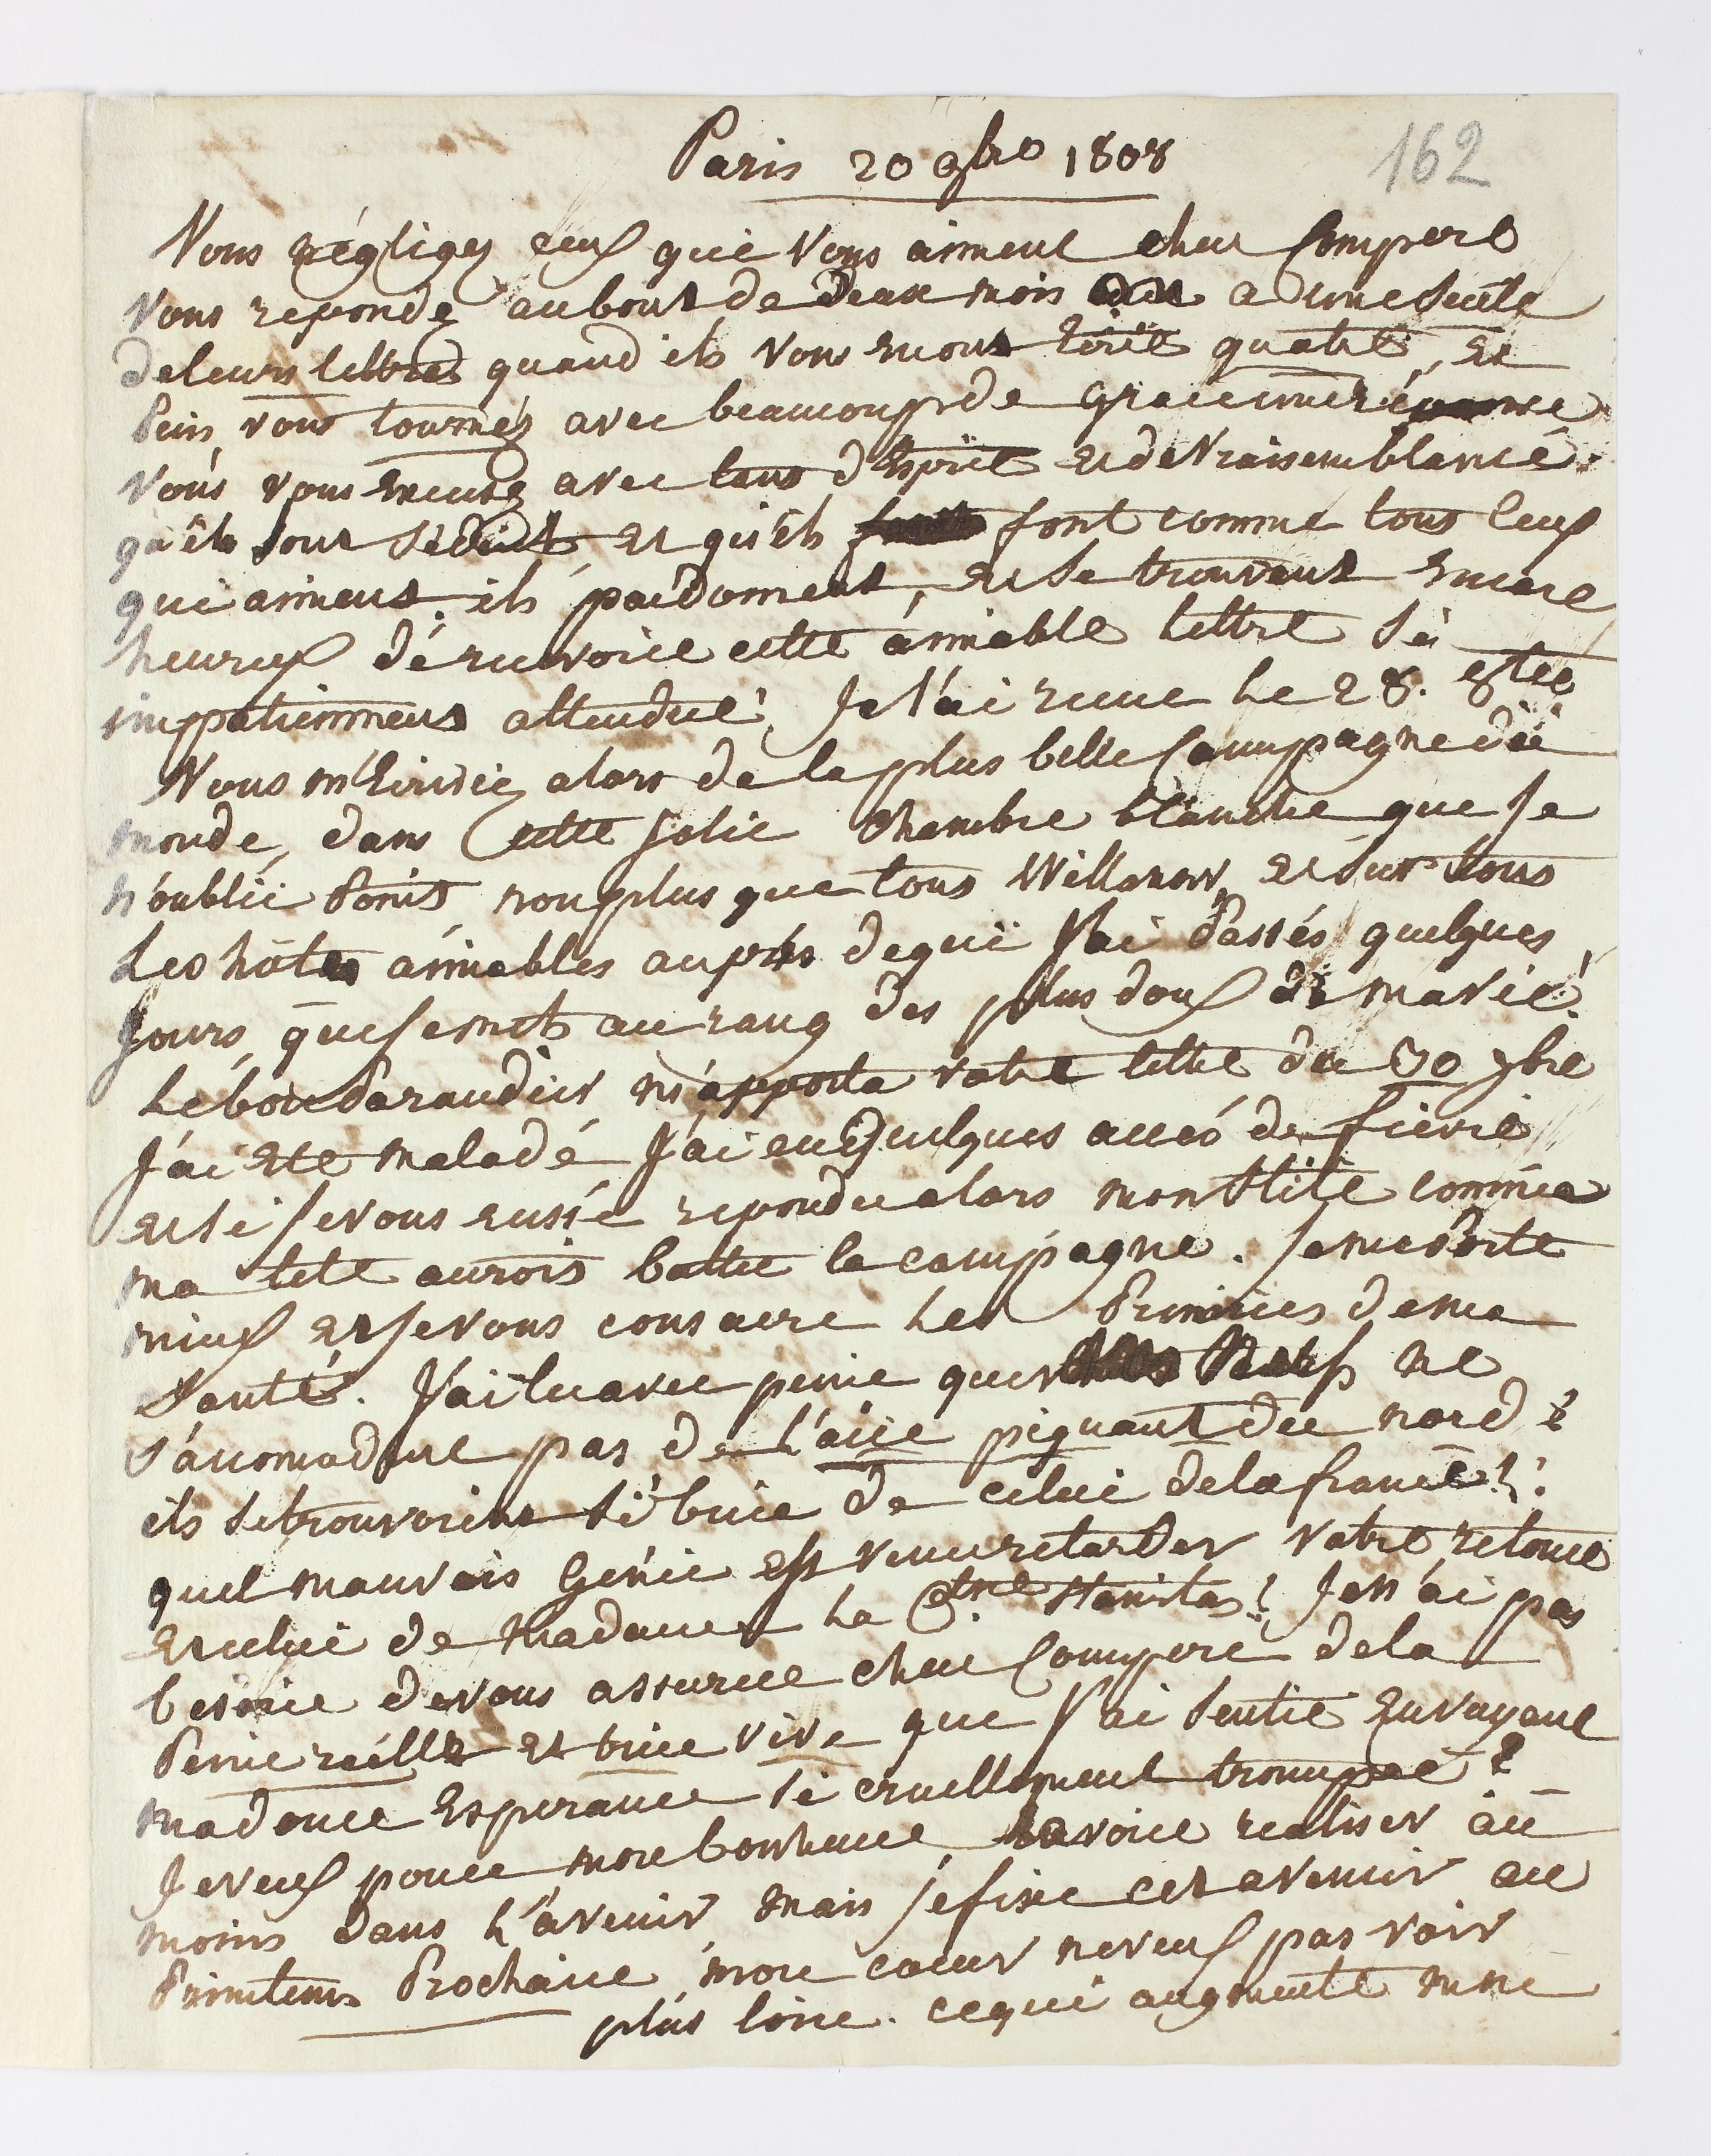 Paris 20 9bre 1808
162
Vous négligez ceux qui vous aiment cher Compere
Vous repondez au bout de deux mois a une seule
de leurs lettres quand ils vous en ont écrit quatre, et
puis vous tournez avec beaucoup de grace une réponse
vous vous excusez avec tant d'esprit et de vraisemblance
qu'ils sont séduits et qu'ils font comme tous ceux
qui aiment. ils pardonnent, et se trouvent encore
heureux de recevoir cette aimable lettre si
impatiemment attendue! Je l'ai recue le 28.
Vous m'écriviez alors de la plus belle Campagne du
monde, dans cette jolie chambre blanche que je
n'oublie point non plus que tous Willanow, et sur tous
Les hôtes aimables auprès de qui J'ai passés quelques
Jours que je mets au rang des plus doux de ma vie!
Le bon Parandier m'apporta votre lettre du 30 7bre
J'ai été malade J'ai eu quelques accès de fievre
et si je vous eusse repondu alors mon stile comme
ma tete aurois battu la campagne. Je me porte
mieux et je vous consacre les Primices de ma
Santé. J'ai lu avec peine que ne
s'accomodent pas de l'air piquant du nord?
ils se trouvoient si bien de celui de la france!!
quel mauvais Génie est venu retarder votre retour
et celui de Madame La Ctsse Stanislas! Je n'ai pas
besoin de vous assurer cher Compere de la
Peine réelle et bien vive que J'ai sentie en voyant
ma douce Esperance si cruellement trompée?
Je veux pour mon bonheur, la voir realiser au
moins dans l'avenir, mais je fixe cet avenir au
Printems Prochain, mon cœur ne veux pas voir
plus loin. ce qui augmente mon